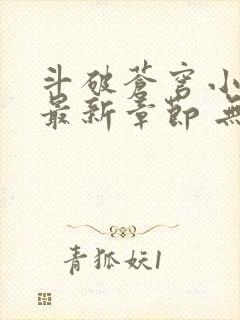 斗破苍穹小
最新章節 無
青狐妖1